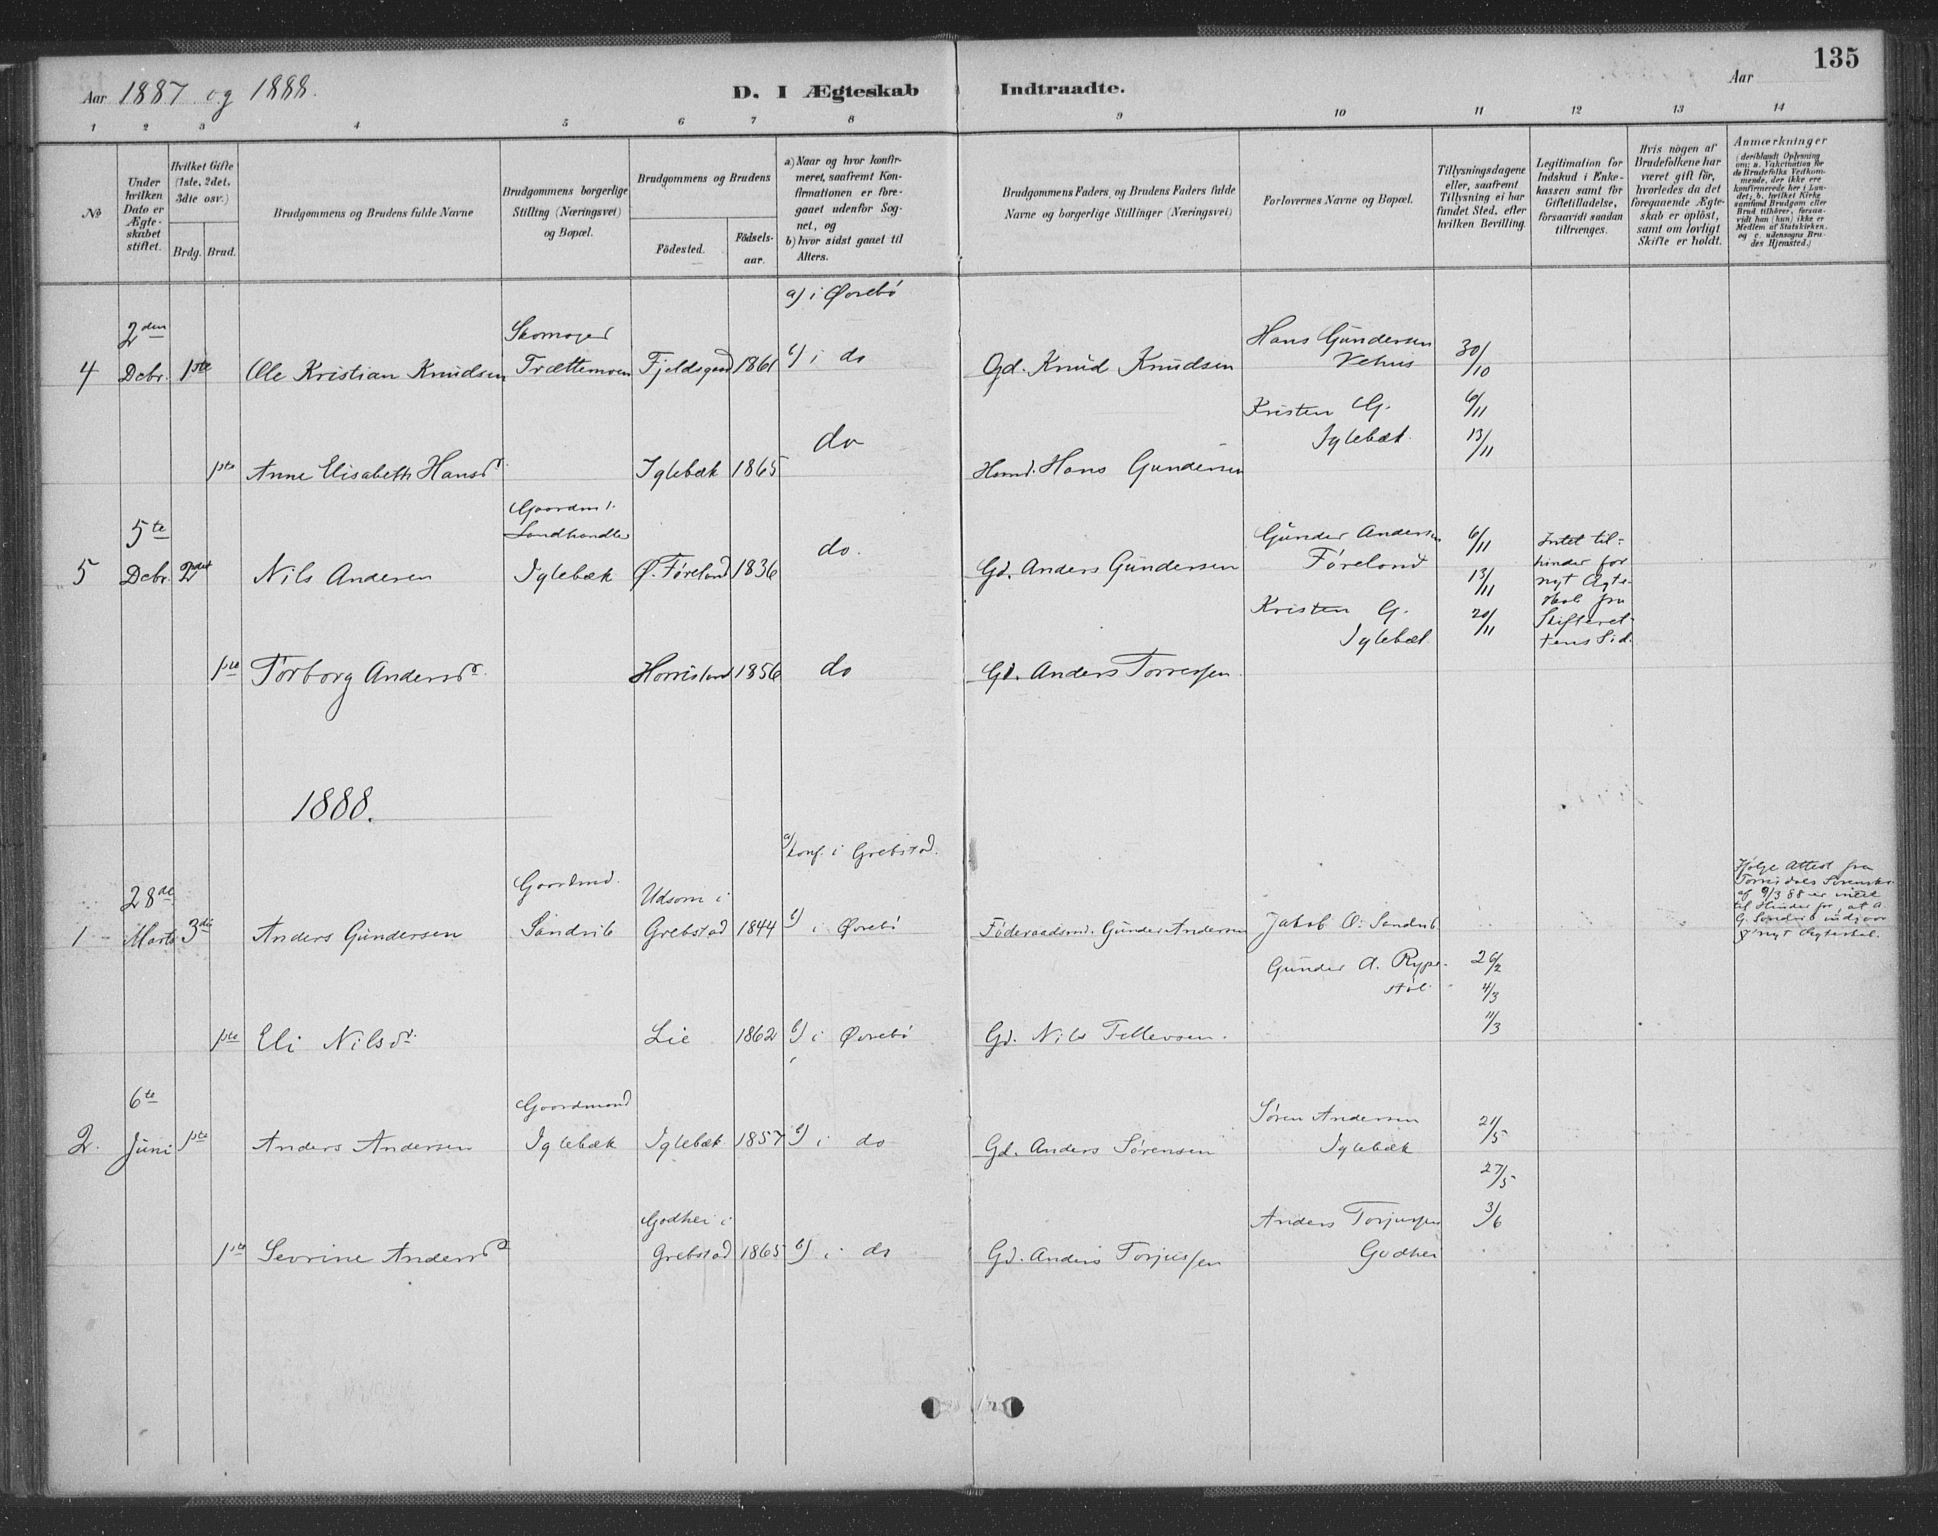 135
Aar 1887 og 1888. D. I Ægteskab Indtraadte. Aar
1 2 3 4 5 6 7 8 9 10 11 12 13 14
No
Under hvilken Dato er Ægte-skabet stiftet.
Hvilket Gifte (1ste, 2det, 3die osv.)
Brdg. Brud.
Brudgommens og Brudens fulde Navne
Brudgommens borgerlige Stilling (Næringsvei) og Bopæl.
Brudgommens og Brudens
Födested. Födsels-aar.
a) Naar og hvor konfir-meret, saafremt Kon-firmationen er fore-gaaet udenfor Sog-net, og
b) hvor sidst gaaet til Alters.
Brudgommens Faders, og Brudens Faders fulde Navne og borgerlige Stillinger (Næringsvei)
Forlovernes Navne og Bopæl.
Tillysningsdagene eller, saafremt Tillysning ei har fundet Sted, efter hvilken Bevilling.
Legitimation for Indskud i Enke-kassen samt for Giftetilladelse, forsaavidt saadan tiltrænges.
Hvis nogen af Brudefolkene har været gift för, hvorledes da det foregaaende Ægte-skab er oplöst, samt om lovligt Skifte er holdt.
Anmærkninger
(deriblandt Oplysning om: a. Vakcination for de Brudefolks Vedkom-mende, der ikke ere konfirmerede her i Lan-det; b. hvilket Kirke-samfund Brudgom eller Brud tilhörer, forsaa-vidt han (hun) ikke er Medlem af Statskirken, og c. udensogns Bru-des Hjemsted.)
a) i Øvrebö
2den Skomager Hans Gundersen
4 Debr. 1ste Ole Kristian Knudsen Trættemoen Fjeldsgaard 1861 i do Gd. Knud Knudsen Vehus 30/10
Kristen G. 6/11
do Iglebæk 13/11
1ste Anne Elisabeth Hansd. Iglebæk 1865 Hans Gundersen
Gaardm.
5te Landhandler Gunder Andersen 6/11 Intet til-
5 Debr. 2det Nils Andersen Iglebæk Ø. Føreland 1836 do. Gd. Anders Gundersen Føreland 13/11 hinder for
nyt Ægte-
Kristen G. 20/11 skab fra
Iglebæk Skifteret-
tens Sid.
1ste Torborg Andersd. Horrisland 1856 do Gd. Anders Torressen
1888.
a) konf. i Grebstad.
28de Gaardmd. Udsom i
1 Marts 3die Anders Gundersen Sandvik Grebstad 1844 i Øvrebö Føderaadsmd. Gunder Andersen Jakob O. Sandvik
Gunder A. Rype- 26/2
stöl. 4/3
11/3
1ste Eli Nilsd. Lie 1862 b) i Øvrebö Gd. Nils Tellevsen.
Ifølge Attest fra
Torrisdals Sorensk.
af 9/3 88 er intet
til Hinder for, at A.
G. Sandvik indgaar
nyt Ægteskab.
6te Gaardmand Søren Andersen 21/5
2. Juni 1ste Anders Andersen Iglebæk Iglebæk 1857 b) i do Gd. Anders Sørensen Iglebæk
27/5
Godhei i Anders Torjussen 3/6
1ste Sevrine Andersd. Grebstad 1865 b) i do Gd. Anders Torjussen Godhei